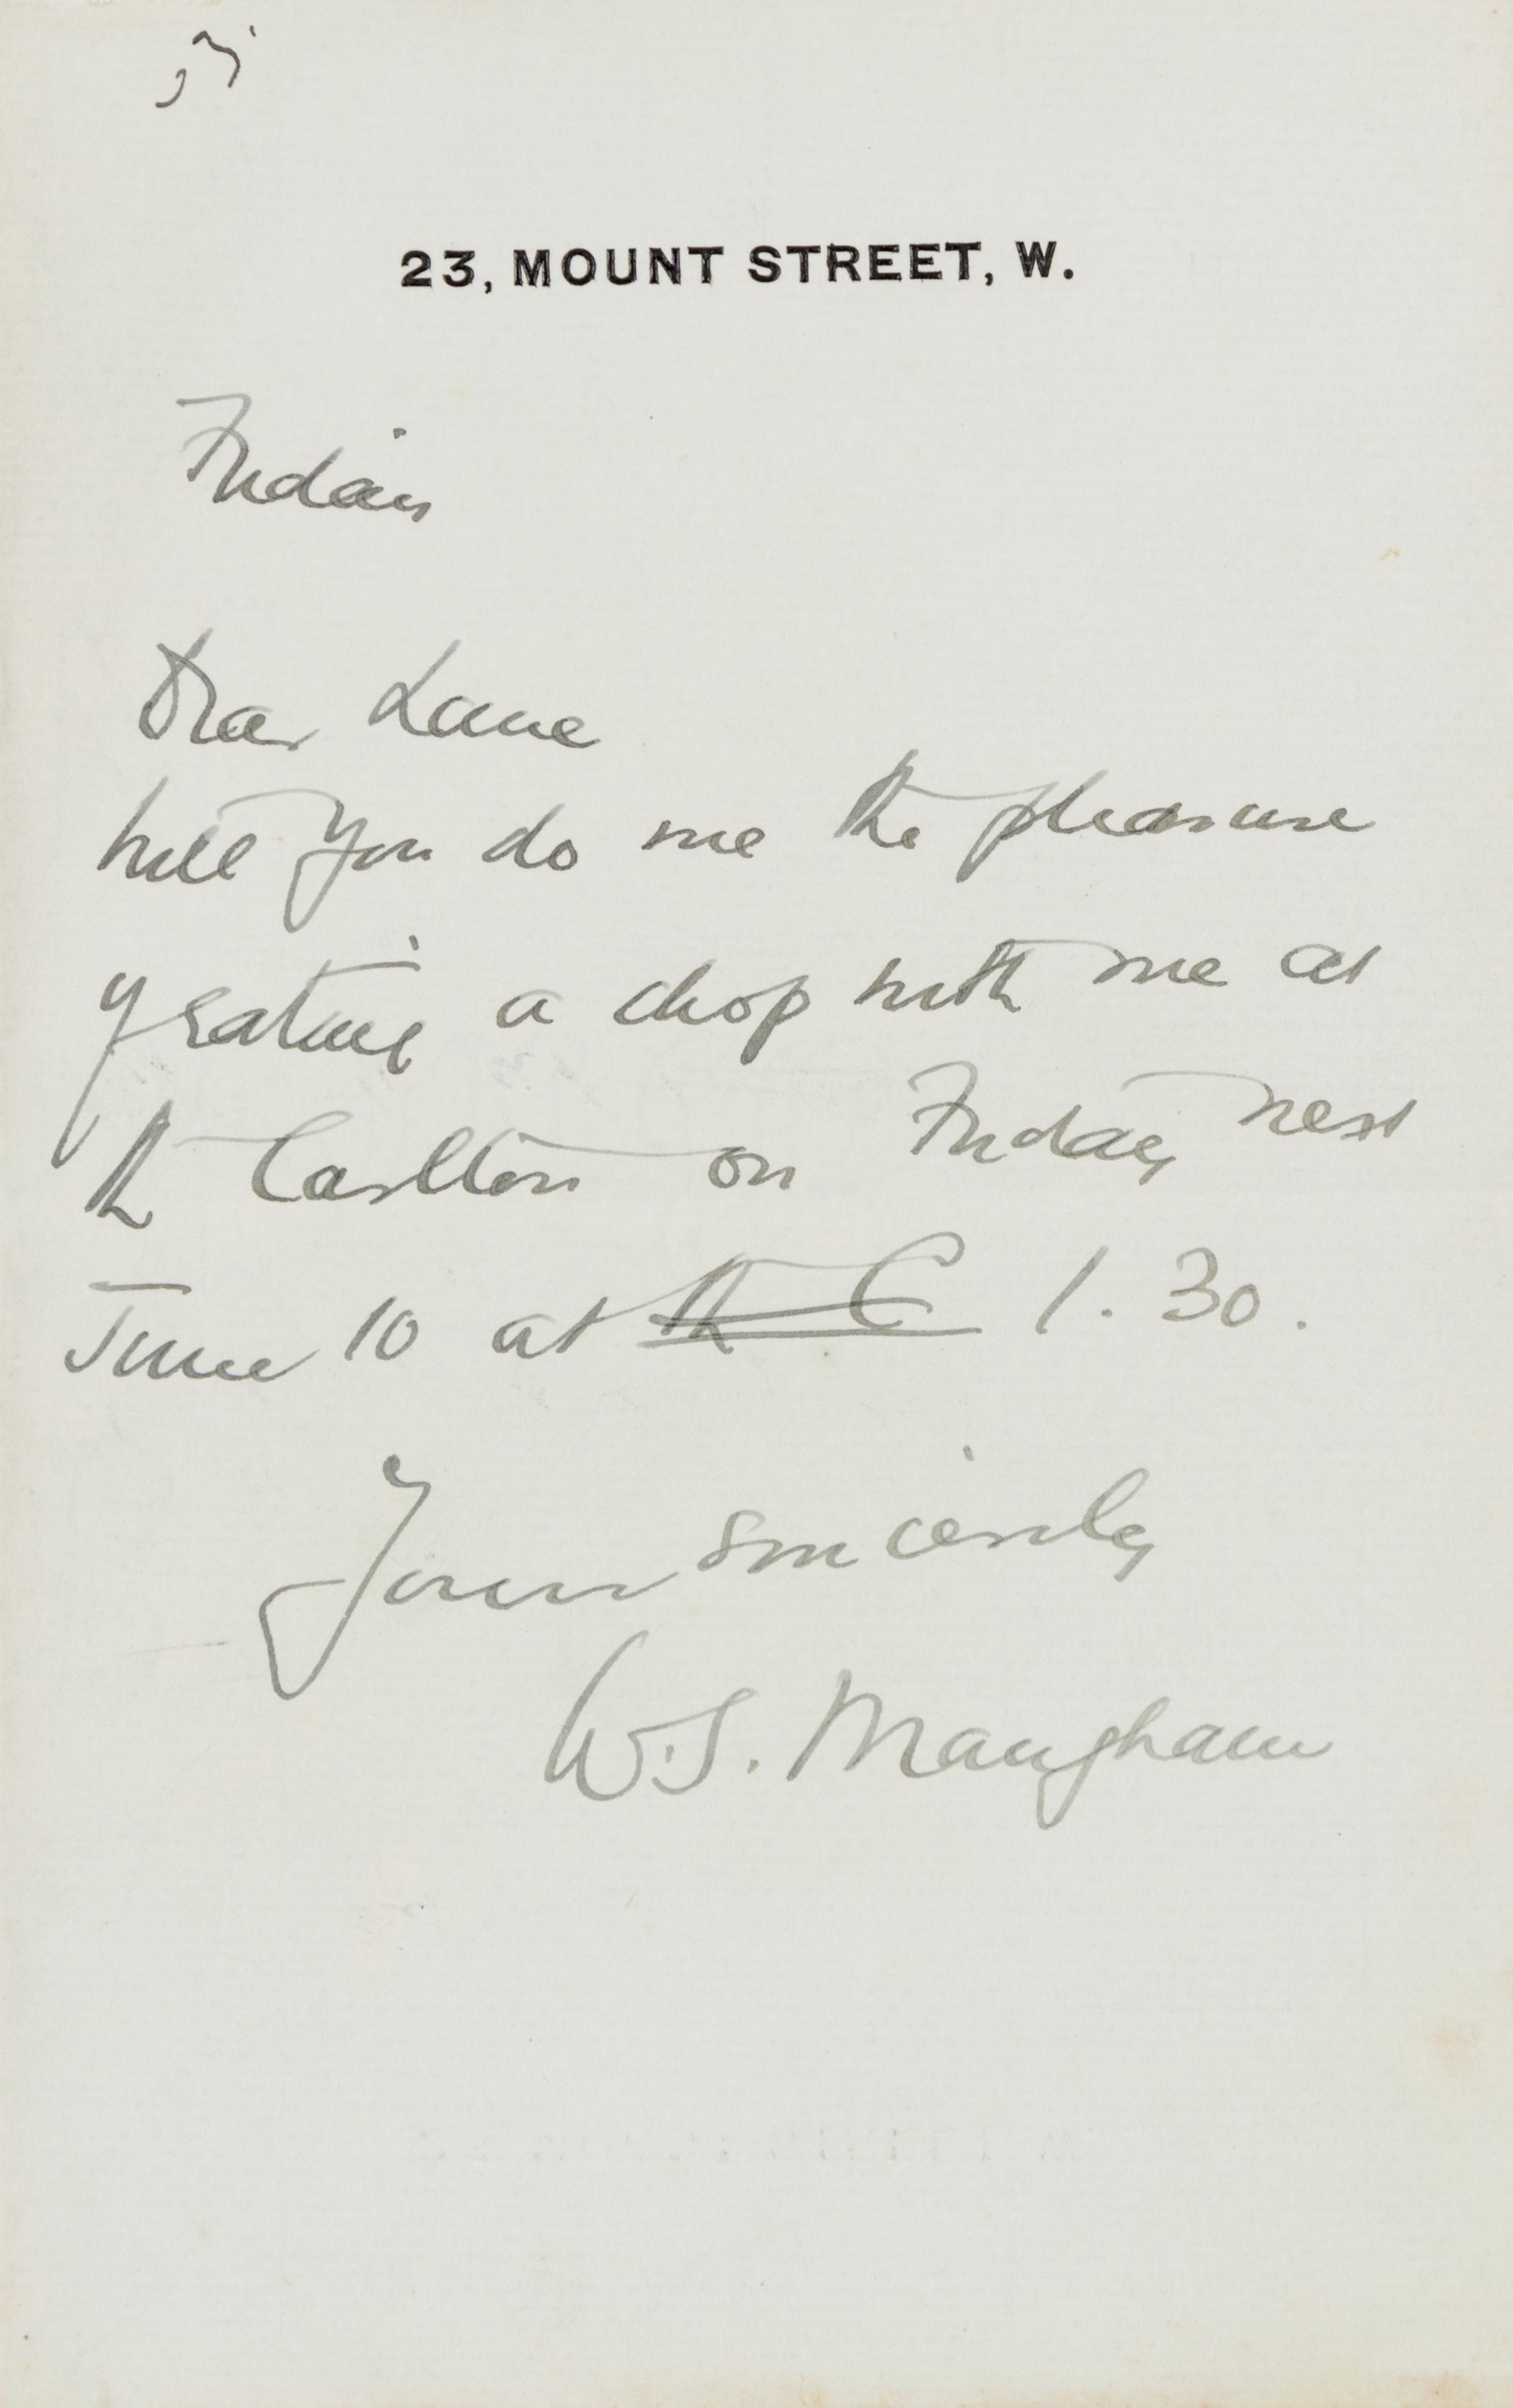 23, MOUNT STREET, W.
Friday
Dear Lane
Will you do me the pleasure
of eating a chop with me at
the Carlton on Friday next
June 10 at the C 1.30.
Yours sincerely
W.S. Maugham